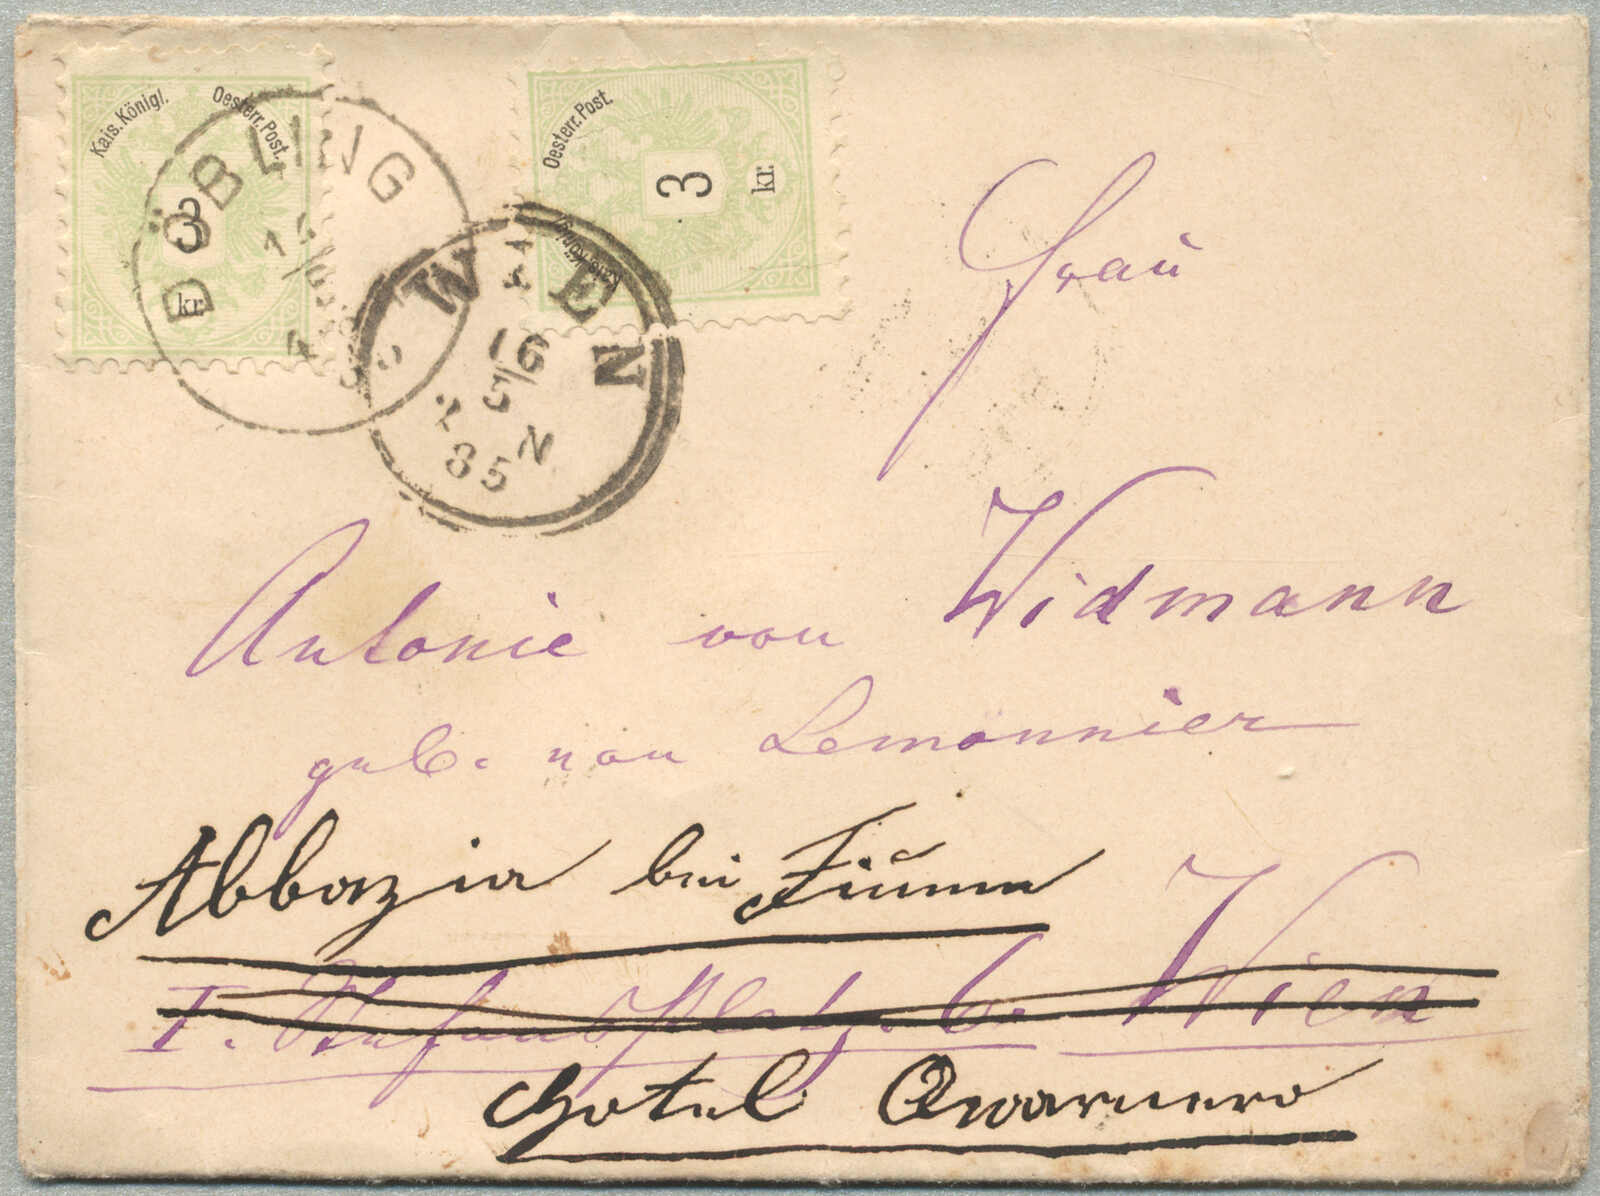 Kais. Königl. Oesterr. Post.
3
kr.
Kais. Königl. Oesterr. Post.
3
kr.
DÖBLING
WIEN
16/5
85
N
Frau
Antonie von Widmann
geb. von Lemonnier
Abbazia bei Fiume
I. Stefansplatz. 6. Wien
Hotel Quarnero